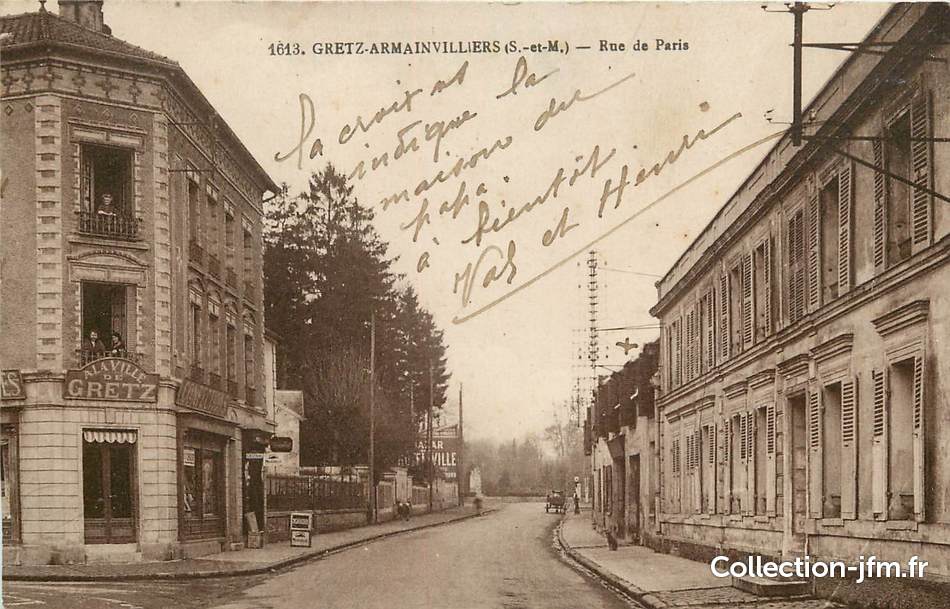 1613. GRETZ-ARMAINVILLIERS (S.-et-M.) — Rue de Paris
la croix au
indique la
maison du
papa.
à bientôt
Val et Henri
A LA VILLE
DE
GRETZ
Collection-jfm.fr